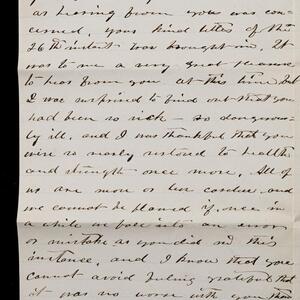 as hearing from you was con-
cerned, your kind letter of the
26th instant was brought in. It
was to me a very great pleasure
to hear from you at this time, but
I was surprised to find out that you
had been so sick – so danger-
ly ill, and I was thankful that you
were so nearly restored to health
and strength once more. All of
us are more or less careless, and
we cannot be blamed if, once in
a while we fall into an error
or mistake as you did in this
instance, and I know that you
cannot avoid feeling grateful that
it was no worse with you than